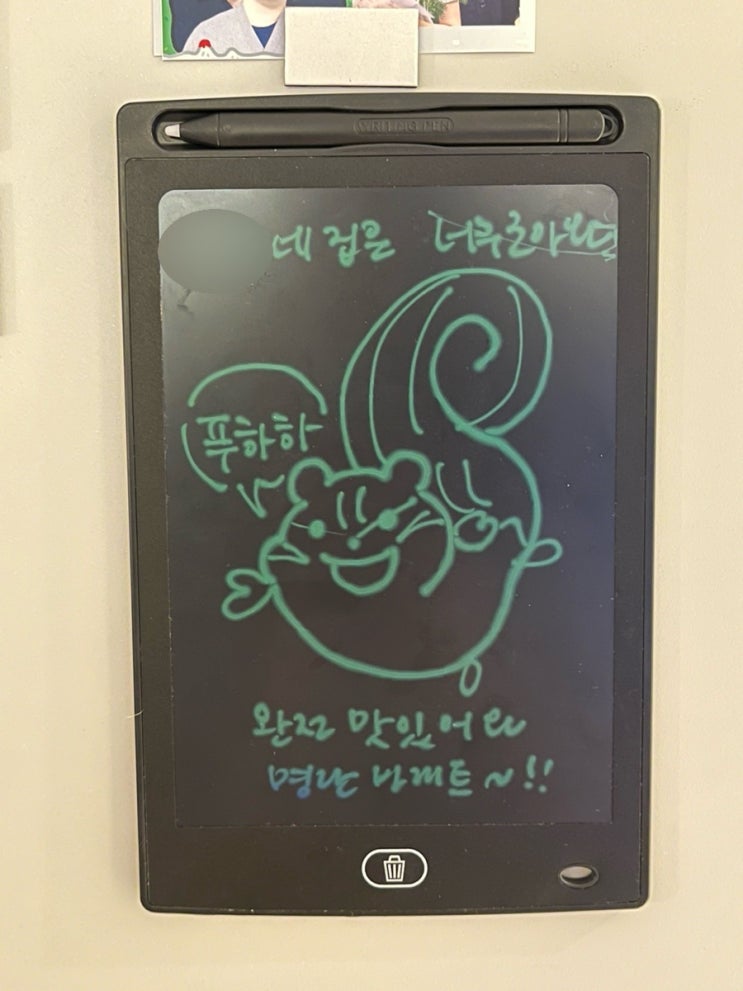 WRITING PEN
네 집은
푸하하
완전 맛있어요
명란 바게트~!!